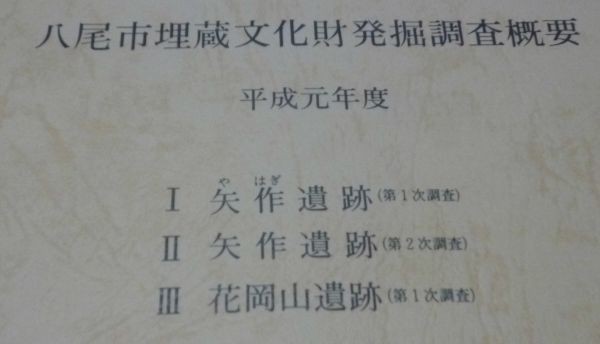 八尾市埋蔵文化財発掘調査概要
平成元年度
や はぎ
Ⅰ 矢作遺跡(第1次調査)
Ⅱ 矢作遺跡(第2次調査)
Ⅲ 花岡山遺跡(第1次調査)